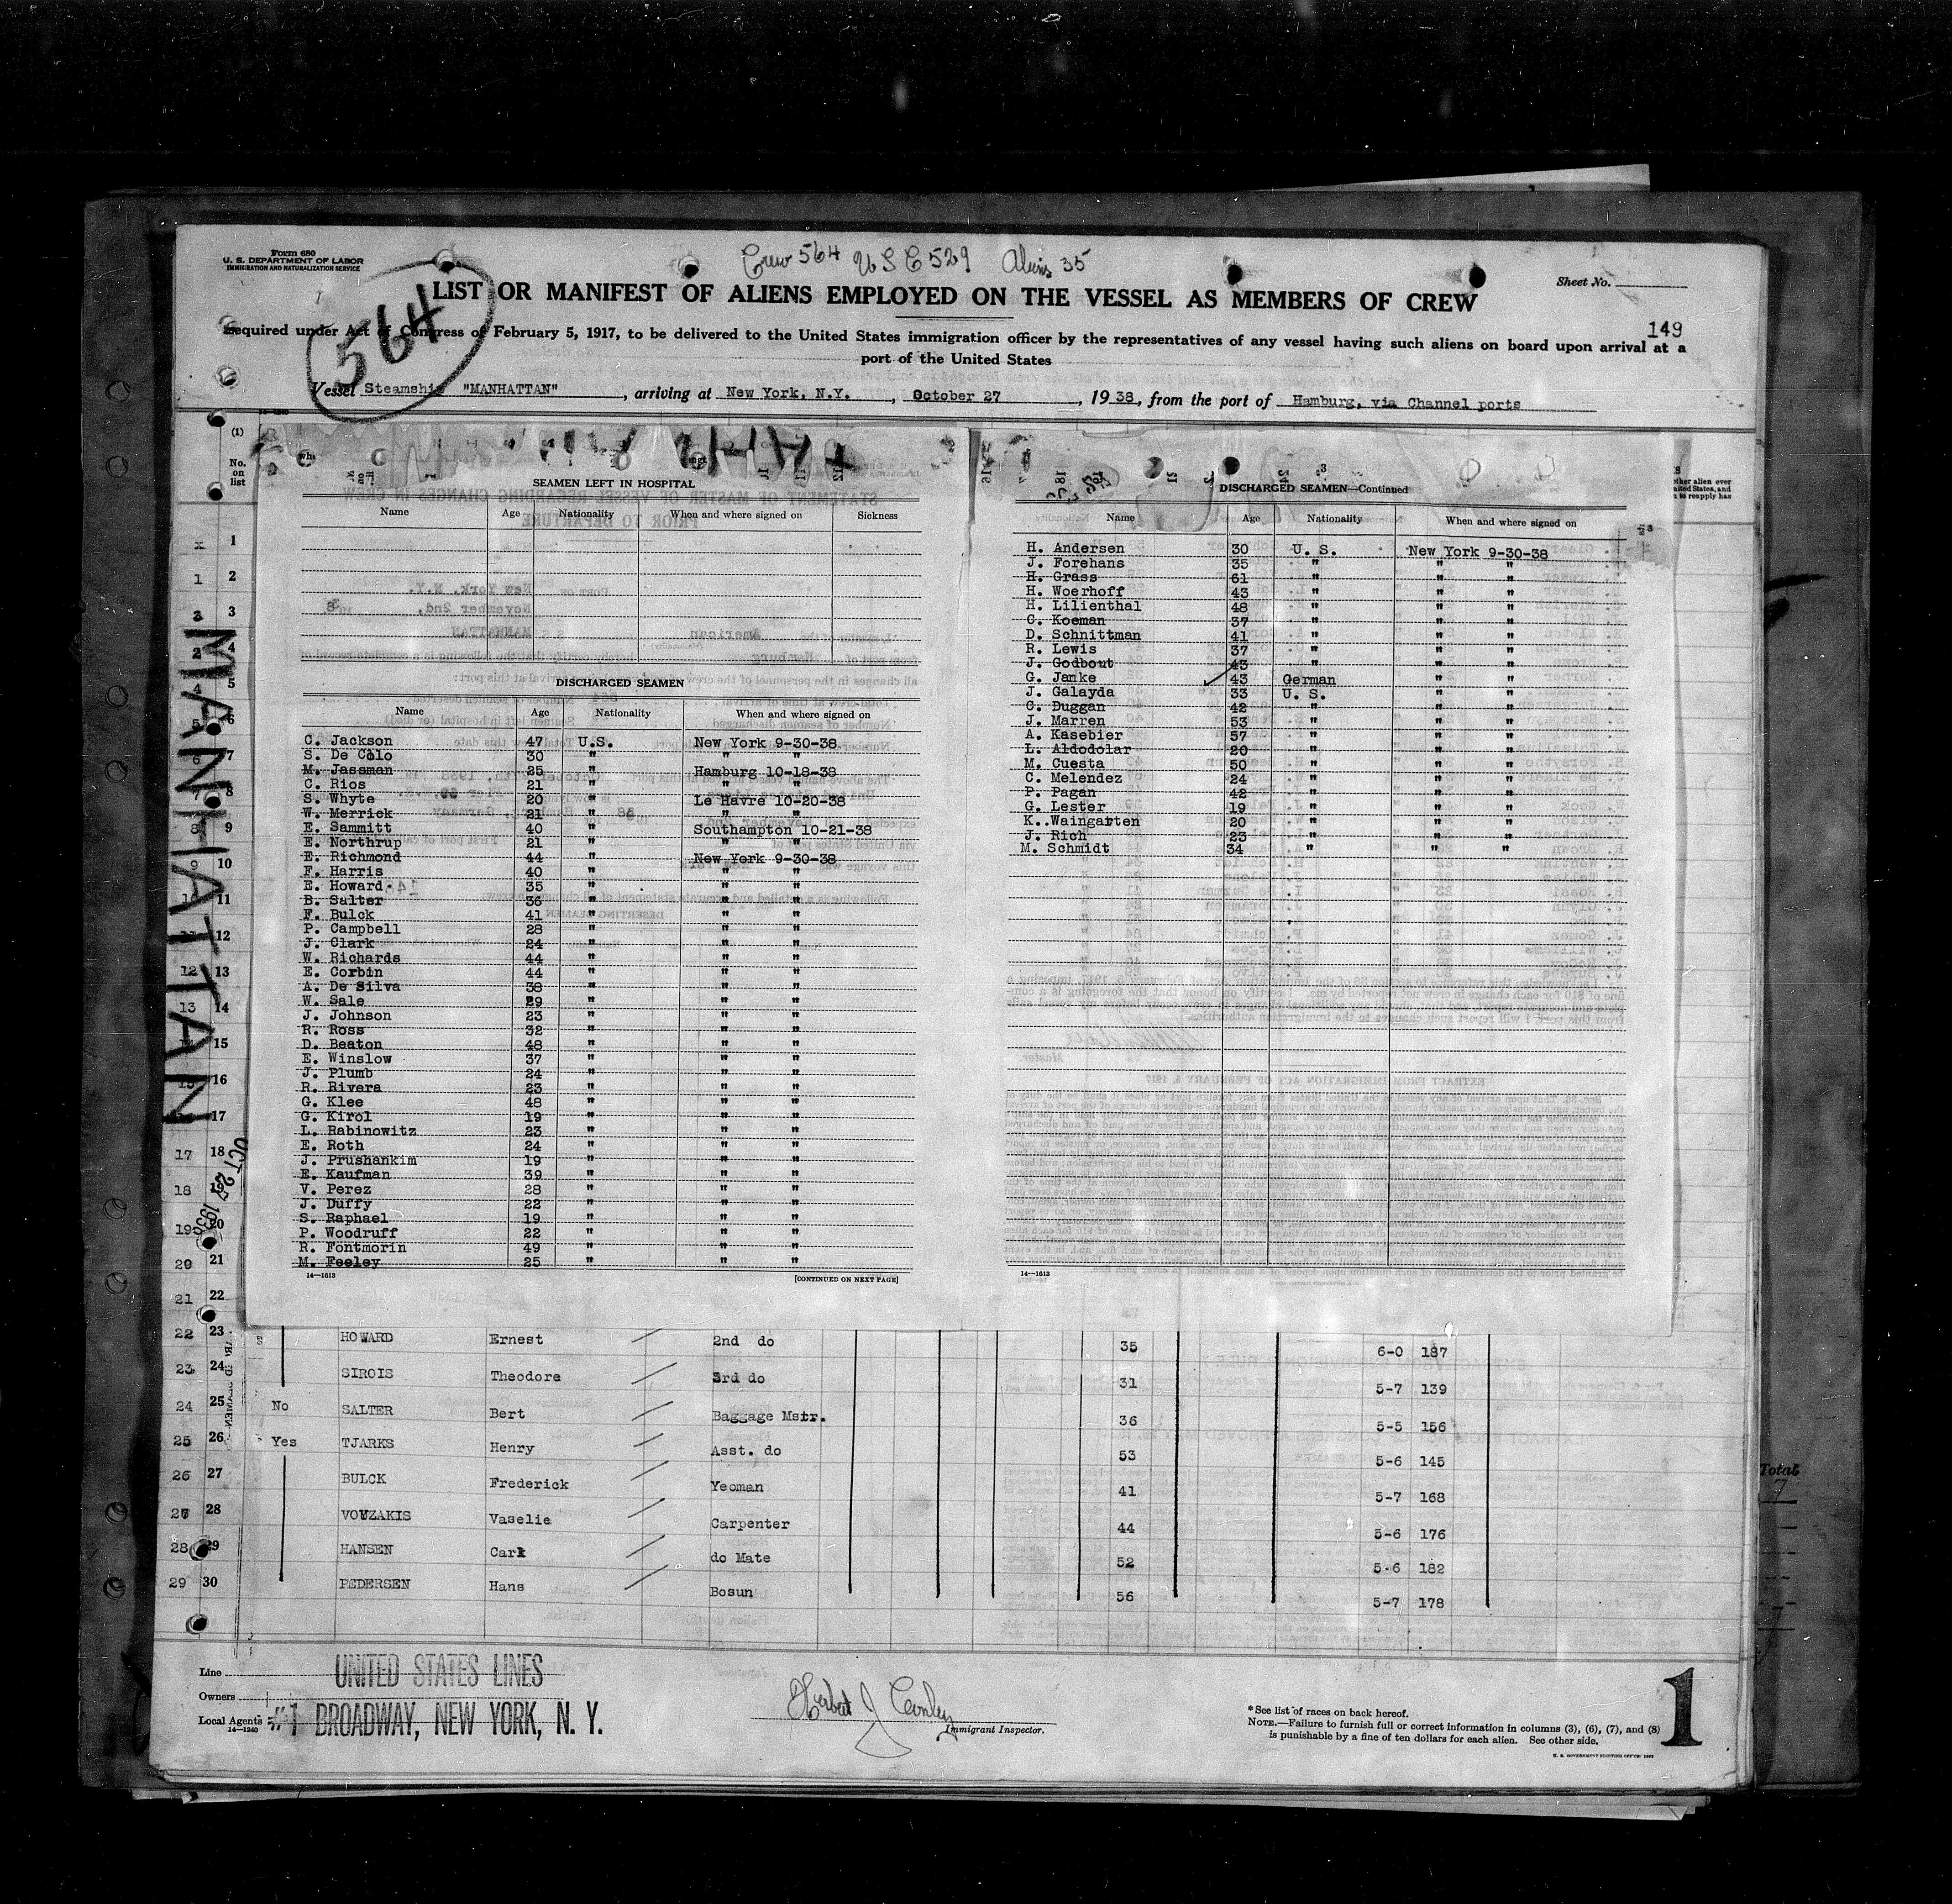 Form 680
U. S. DEPARTMENT OF LABOR
IMMIGRATION AND NATURALIZATION SERVICE
Crew 564 USC 529 Aliens 35
Sheet No.
564
LIST OR MANIFEST OF ALIENS EMPLOYED ON THE VESSEL AS MEMBERS OF CREW
149
Required under Act of Congress of February 5, 1917, to be delivered to the United States immigration officer by the representatives of any vessel having such aliens on board upon arrival at a
port of the United States
Vessel Steamship "MANHATTAN", arriving at New York, N.Y., October 27, 1938, from the port of Hamburg, via Channel ports
(1)
No. on list
MANHATTAN
OCT 27 1938
SEAMEN LEFT IN HOSPITAL
Name Age Nationality When and where signed on Sickness
DISCHARGED SEAMEN
Name Age Nationality When and where signed on
C. Jackson 47 U.S. New York 9-30-38
S. De Colo 30 " " "
M. Jassman 25 " Hamburg 10-18-38
C. Rios 21 " " "
S. Whyte 20 " Le Havre 10-20-38
W. Merrick 21 " " "
E. Sammitt 40 " Southampton 10-21-38
E. Northrup 21 " " "
E. Richmond 44 " New York 9-30-38
F. Harris 40 " " "
E. Howard 35 " " "
B. Salter 36 " " "
F. Bulck 41 " " "
P. Campbell 28 " " "
J. Clark 24 " " "
W. Richards 44 " " "
E. Corbin 44 " " "
A. De Silva 38 " " "
W. Sale 29 " " "
J. Johnson 23 " " "
R. Ross 32 " " "
D. Beaton 48 " " "
E. Winslow 37 " " "
J. Plumb 24 " " "
R. Rivera 23 " " "
G. Klee 48 " " "
G. Kirol 19 " " "
L. Rabinowitz 23 " " "
E. Roth 24 " " "
J. Prushankim 19 " " "
E. Kaufman 39 " " "
V. Perez 28 " " "
J. Duffy 22 " " "
S. Raphael 19 " " "
P. Woodruff 22 " " "
R. Fontmorin 49 " " "
M. Feeley 25 " " "
14—1613 [CONTINUED ON NEXT PAGE]
DISCHARGED SEAMEN—Continued
Name Age Nationality When and where signed on
H. Andersen 30 U. S. New York 9-30-38
J. Forehans 35 " " "
H. Grass 61 " " "
H. Woerhoff 43 " " "
H. Lilienthal 48 " " "
C. Koeman 37 " " "
D. Schnittman 41 " " "
R. Lewis 37 " " "
J. Godbout 43 " " "
G. Janke 43 German " "
J. Galayda 33 U. S. " "
C. Duggan 42 " " "
J. Marren 53 " " "
A. Kasebier 57 " " "
L. Aldodolar 20 " " "
M. Cuesta 50 " " "
C. Melendez 24 " " "
P. Pagan 42 " " "
G. Lester 19 " " "
K. Waingarten 20 " " "
J. Rich 23 " " "
M. Schmidt 34 " " "
14—1613
22 23 HOWARD Ernest 2nd do 35 6-0 187
23 24 SIROIS Theodore 3rd do 31 5-7 139
24 25 No SALTER Bert Baggage Mstr. 36 5-5 156
25 26 Yes TJARKS Henry Asst. do 53 5-6 145
26 27 BULCK Frederick Yeoman 41 5-7 168
27 28 VOUZAKIS Vaselie Carpenter 44 5-6 176
28 29 HANSEN Carl do Mate 52 5-6 182
29 30 PEDERSEN Hans Bosun 56 5-7 178
Total
Line UNITED STATES LINES
Owners
Local Agents #1 BROADWAY, NEW YORK, N. Y.
14—1240
Immigrant Inspector.
*See list of races on back hereof.
NOTE.—Failure to furnish full or correct information in columns (3), (6), (7), and (8)
is punishable by a fine of ten dollars for each alien. See other side.
1